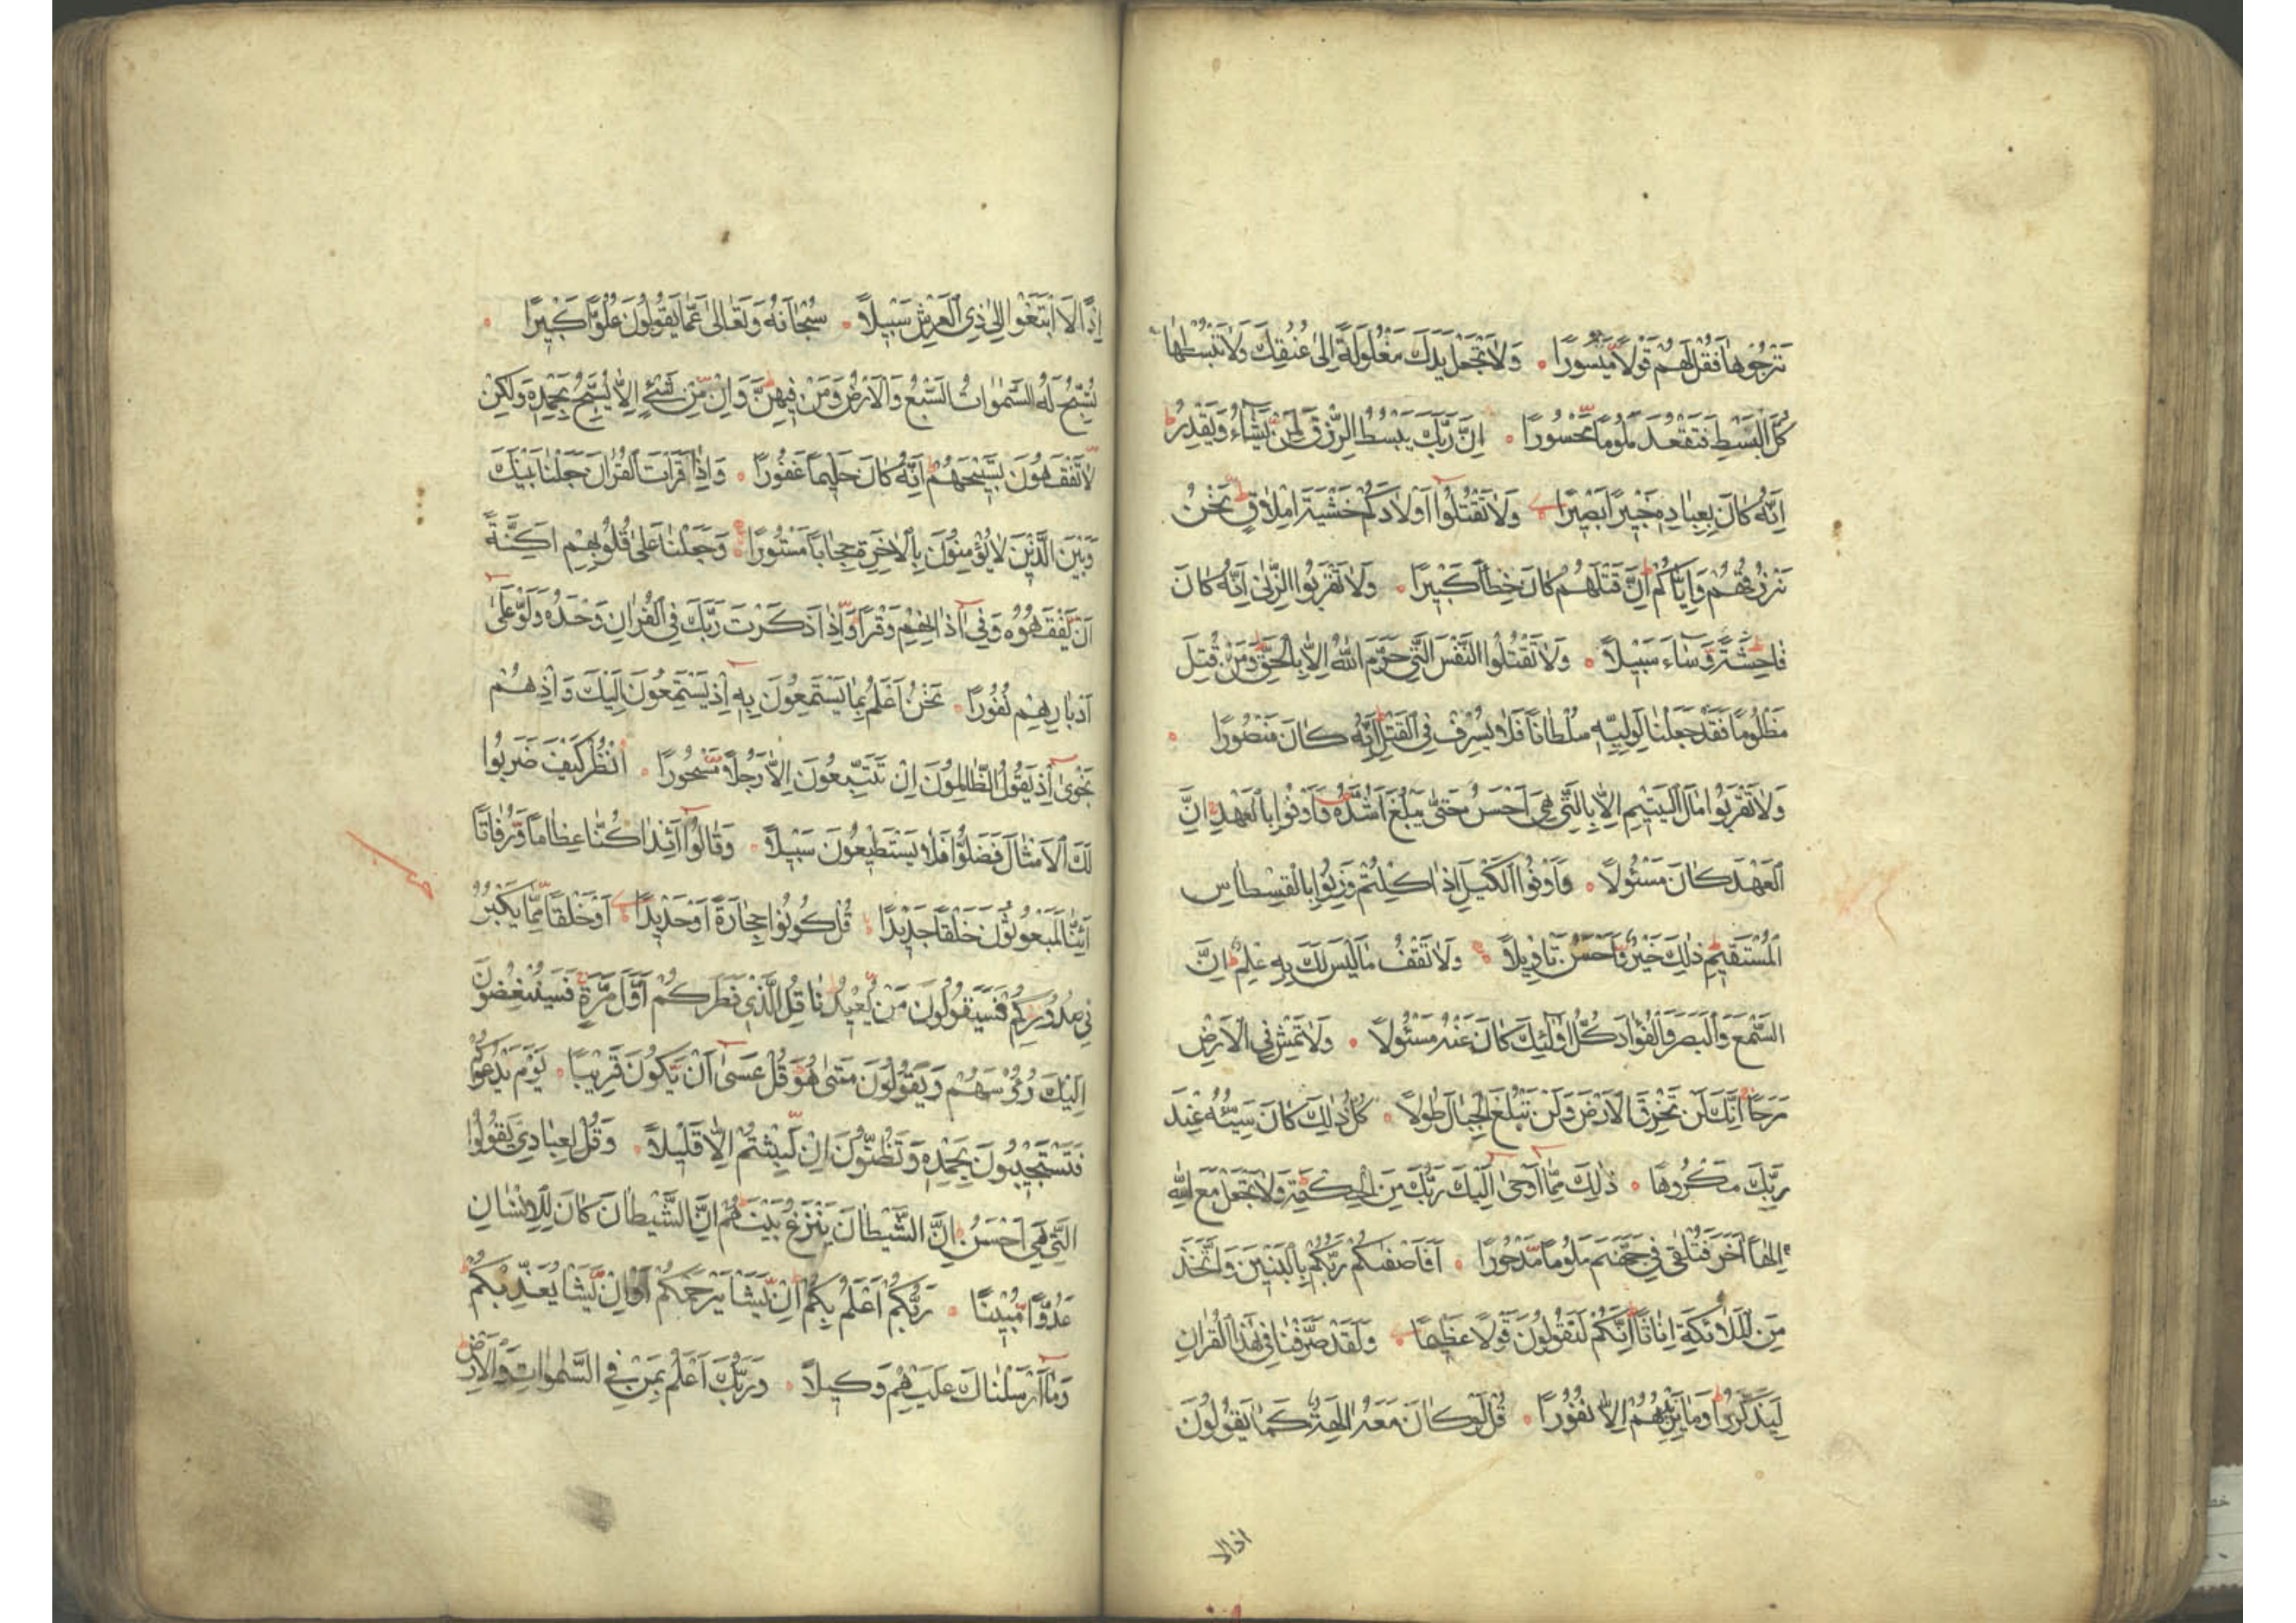 تَرْجُوهَا فَقُلْ لَهُمْ قَوْلاً مَيْسُورًا وَلَا تَجْعَلْ يَدَكَ مَغْلُولَةً اِلىٰ عُنُقِكَ وَلَا تَبْسُطْهَا
كُلَّ الْبَسْطِ فَتَقْعُدَ مَلُومًا مَحْسُورًا اِنَّ رَبَّكَ يَبْسُطُ الرِّزْقَ لِمَنْ يَشَاءُ وَيَقْدِرُ
اِنَّهُ كَانَ بِعِبَادِهِ خَبِيرًا بَصِيرًا وَلَا تَقْتُلُوا اَوْلَادَكُمْ خَشْيَةَ اِمْلَاقٍ نَحْنُ
نَرْزُقُهُمْ وَاِيَّاكُمْ اِنَّ قَتْلَهُمْ كَانَ خِطْأً كَبِيرًا وَلَا تَقْرَبُوا الزِّنىٰ اِنَّهُ كَانَ
فَاحِشَةً وَسَاءَ سَبِيلاً وَلَا تَقْتُلُوا النَّفْسَ الَّتِي حَرَّمَ اللّٰهُ اِلَّا بِالْحَقِّ وَمَنْ قُتِلَ
مَظْلُومًا فَقَدْ جَعَلْنَا لِوَلِيِّهِ سُلْطَانًا فَلَا يُسْرِفْ فِي الْقَتْلِ اِنَّهُ كَانَ مَنْصُورًا
وَلَا تَقْرَبُوا مَالَ الْيَتِيمِ اِلَّا بِالَّتِي هِيَ اَحْسَنُ حَتّٰى يَبْلُغَ اَشُدَّهُ وَاَوْفُوا بِالْعَهْدِ اِنَّ
الْعَهْدَ كَانَ مَسْئُولاً وَاَوْفُوا الْكَيْلَ اِذَا كِلْتُمْ وَزِنُوا بِالْقِسْطَاسِ
الْمُسْتَقِيمِ ذٰلِكَ خَيْرٌ وَاَحْسَنُ تَأْوِيلاً وَلَا تَقْفُ مَا لَيْسَ لَكَ بِهِ عِلْمٌ اِنَّ
السَّمْعَ وَالْبَصَرَ وَالْفُؤَادَ كُلُّ اُولٰئِكَ كَانَ عَنْهُ مَسْئُولاً وَلَا تَمْشِ فِي الْاَرْضِ
مَرَحًا اِنَّكَ لَنْ تَخْرِقَ الْاَرْضَ وَلَنْ تَبْلُغَ الْجِبَالَ طُولاً كُلُّ ذٰلِكَ كَانَ سَيِّئُهُ عِنْدَ
رَبِّكَ مَكْرُوهًا ذٰلِكَ مِمَّا اَوْحىٰ اِلَيْكَ رَبُّكَ مِنَ الْحِكْمَةِ وَلَا تَجْعَلْ مَعَ اللّٰهِ
اِلٰهًا اٰخَرَ فَتُلْقىٰ فِي جَهَنَّمَ مَلُومًا مَدْحُورًا اَفَاَصْفٰكُمْ رَبُّكُمْ بِالْبَنِينَ وَاتَّخَذَ
مِنَ الْمَلٰئِكَةِ اِنَاثًا اِنَّكُمْ لَتَقُولُونَ قَوْلاً عَظِيمًا وَلَقَدْ صَرَّفْنَا فِي هٰذَا الْقُرْاٰنِ
لِيَذَّكَّرُوا وَمَا يَزِيدُهُمْ اِلَّا نُفُورًا قُلْ لَوْ كَانَ مَعَهُ اٰلِهَةٌ كَمَا يَقُولُونَ
اذالا
اِذًا لَابْتَغَوْا اِلىٰ ذِي الْعَرْشِ سَبِيلاً سُبْحَانَهُ وَتَعَالىٰ عَمَّا يَقُولُونَ عُلُوًّا كَبِيرًا
تُسَبِّحُ لَهُ السَّمٰوَاتُ السَّبْعُ وَالْاَرْضُ وَمَنْ فِيهِنَّ وَاِنْ مِنْ شَيْءٍ اِلَّا يُسَبِّحُ بِحَمْدِهِ وَلٰكِنْ
لَا تَفْقَهُونَ تَسْبِيحَهُمْ اِنَّهُ كَانَ حَلِيمًا غَفُورًا وَاِذَا قَرَأْتَ الْقُرْاٰنَ جَعَلْنَا بَيْنَكَ
وَبَيْنَ الَّذِينَ لَا يُؤْمِنُونَ بِالْاٰخِرَةِ حِجَابًا مَسْتُورًا وَجَعَلْنَا عَلىٰ قُلُوبِهِمْ اَكِنَّةً
اَنْ يَفْقَهُوهُ وَفِي اٰذَانِهِمْ وَقْرًا وَاِذَا ذَكَرْتَ رَبَّكَ فِي الْقُرْاٰنِ وَحْدَهُ وَلَّوْا عَلىٰ
اَدْبَارِهِمْ نُفُورًا نَحْنُ اَعْلَمُ بِمَا يَسْتَمِعُونَ بِهِ اِذْ يَسْتَمِعُونَ اِلَيْكَ وَاِذْ هُمْ
نَجْوىٰ اِذْ يَقُولُ الظَّالِمُونَ اِنْ تَتَّبِعُونَ اِلَّا رَجُلاً مَسْحُورًا اُنْظُرْ كَيْفَ ضَرَبُوا
لَكَ الْاَمْثَالَ فَضَلُّوا فَلَا يَسْتَطِيعُونَ سَبِيلاً وَقَالُوا اَئِذَا كُنَّا عِظَامًا وَرُفَاتًا
اَئِنَّا لَمَبْعُوثُونَ خَلْقًا جَدِيدًا قُلْ كُونُوا حِجَارَةً اَوْ حَدِيدًا اَوْ خَلْقًا مِمَّا يَكْبُرُ
فِي صُدُورِكُمْ فَسَيَقُولُونَ مَنْ يُعِيدُنَا قُلِ الَّذِي فَطَرَكُمْ اَوَّلَ مَرَّةٍ فَسَيُنْغِضُونَ
اِلَيْكَ رُؤُسَهُمْ وَيَقُولُونَ مَتىٰ هُوَ قُلْ عَسىٰ اَنْ يَكُونَ قَرِيبًا يَوْمَ يَدْعُوكُمْ
فَتَسْتَجِيبُونَ بِحَمْدِهِ وَتَظُنُّونَ اِنْ لَبِثْتُمْ اِلَّا قَلِيلاً وَقُلْ لِعِبَادِي يَقُولُوا
الَّتِي هِيَ اَحْسَنُ اِنَّ الشَّيْطَانَ يَنْزَغُ بَيْنَهُمْ اِنَّ الشَّيْطَانَ كَانَ لِلْاِنْسَانِ
عَدُوًّا مُبِينًا رَبُّكُمْ اَعْلَمُ بِكُمْ اِنْ يَشَأْ يَرْحَمْكُمْ اَوْ اِنْ يَشَأْ يُعَذِّبْكُمْ
وَمَا اَرْسَلْنَاكَ عَلَيْهِمْ وَكِيلاً وَرَبُّكَ اَعْلَمُ بِمَنْ فِي السَّمٰوَاتِ وَالْاَرْضِ